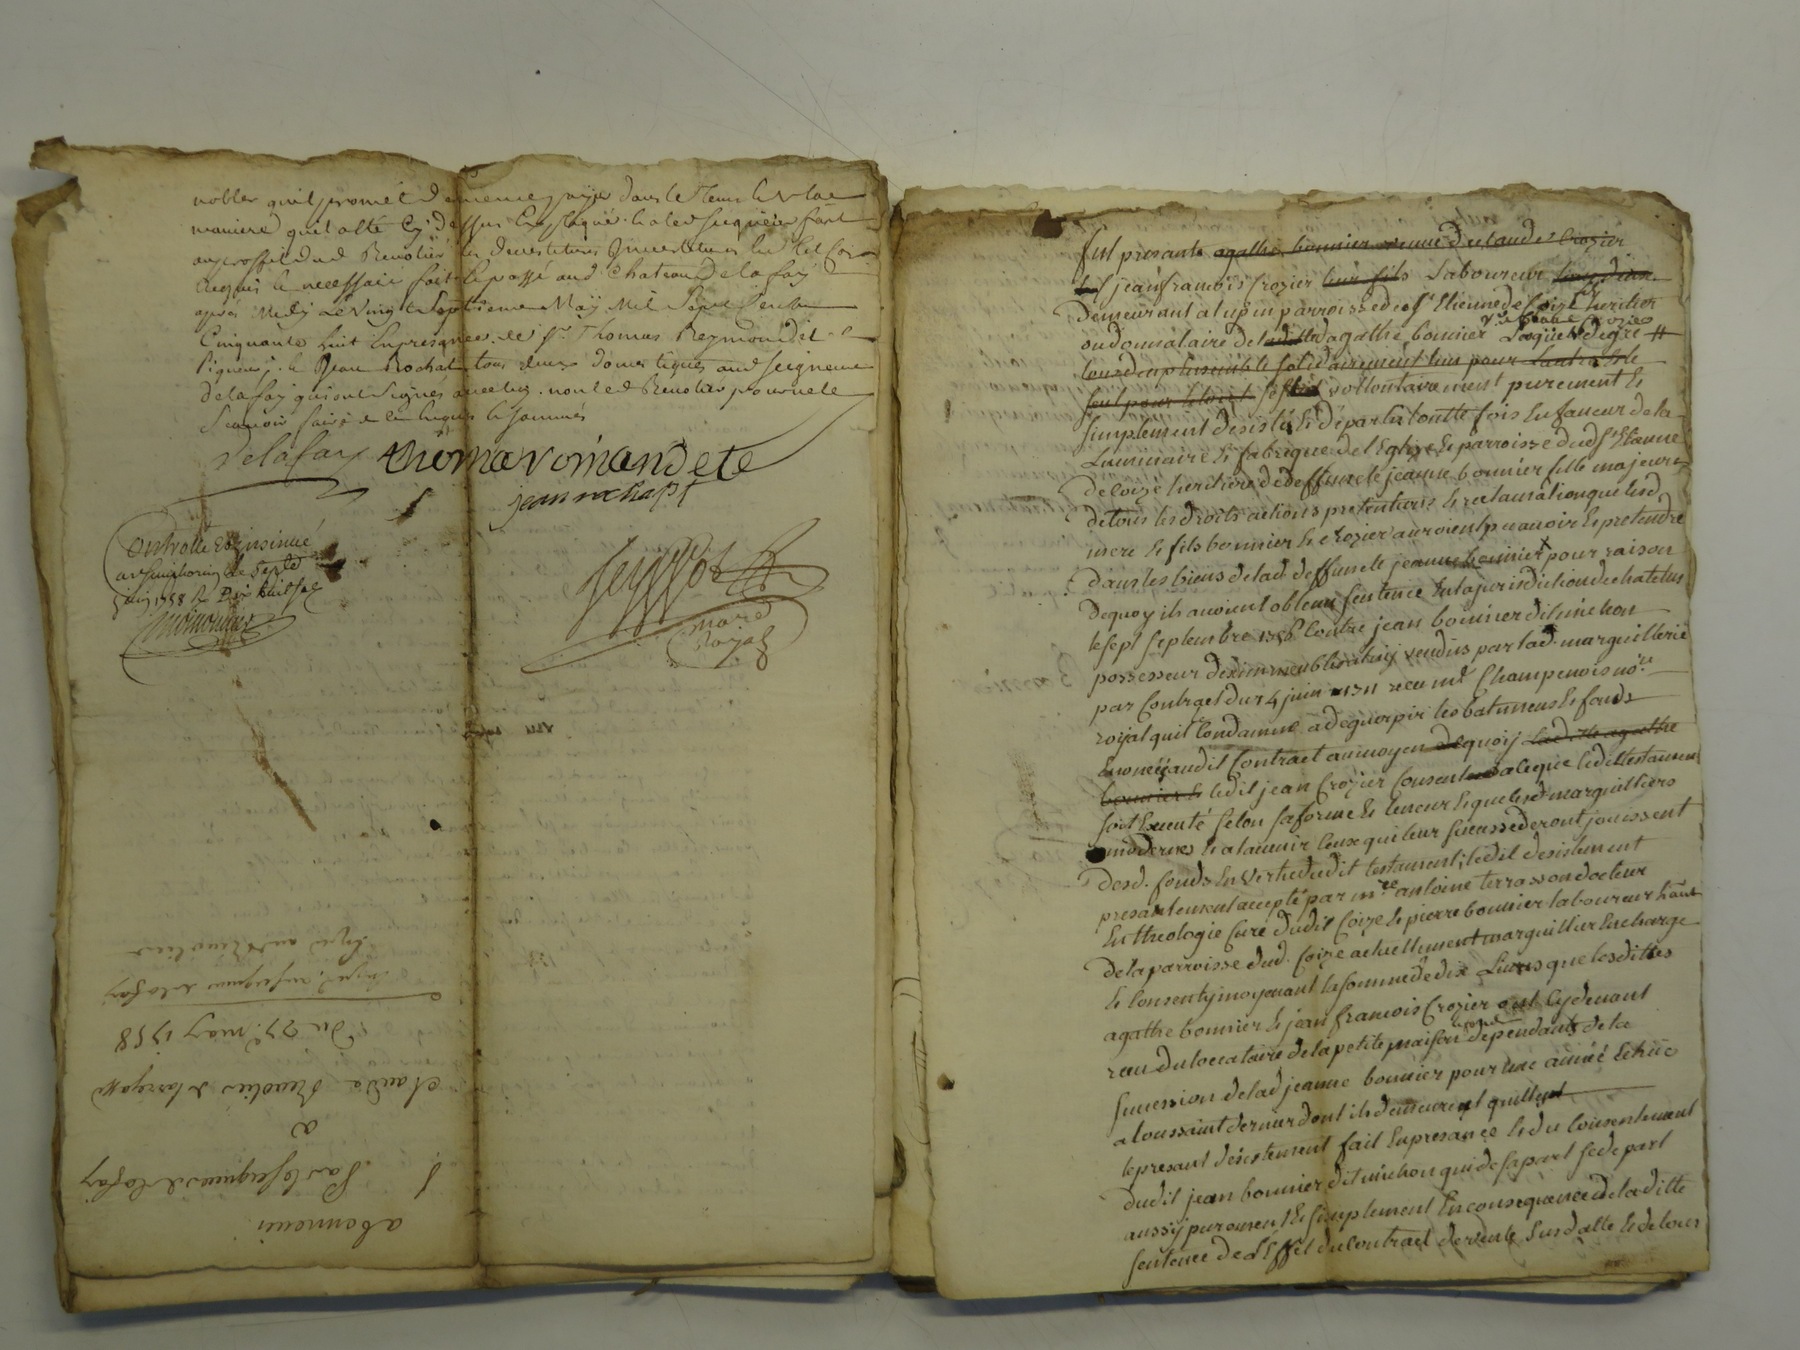 nobler quil promet de meme payer dans le Tems et de la
maniere quil a esté Cy dessus Expliqué
au proffit dud Renolier les devestitures Investitures
Requis le necessaire fait et passé aud Chateau de la fay
après Midy Le Vingt Septieme May Mil Sept Cent
Cinquante huit En presence de Sr Thomas Reymondet
et Jean Rochat tous deux domestiques aud seigneur
de la fay qui ont Signés avec luy non led Renolier pour ne le
Scavoir faire de ce Enquis et sommés
Delafay thoma romandete
jean rochapt
Controllé et insinué
a st Simphorien le Sept
juin 1758 R Dix huit sols
nore
Royal
du 27e may 1758
a
abonnerie
fut presante agathe bonnier veuve de claude Crozier
et jean françois Crozier leur fils Laboureur
demeurant a lupin parroisse de st Etienne de Coize heritier
ou donnataire de lad agathe bonnier Lequel de gré
tous deux ensemble solidairement l'un pour l'autre et le
seul pour le tout vollontairement purement et
simplement desisté et départis toutte fois En faveur de la
Luminaire et fabrique de l'Eglise et parroisse dud st Etienne
de Coize heritiere de deffuncte jeanne bonnier fille majeure
de tous les droits actions pretentions et reclamation que lesd
mere et fils bonnier et Crozier auroient pu avoir et pretendre
dans les biens de lad deffuncte jeanne bonnier pour raison
de quoy ils avoient obtenu sentence En la jurisdiction de chatelus
le sept septembre 1756 Contre jean bonnier dit michon
possesseur des immeubles vendus par lad marguillerie
par Contract du 14 juin 1731 recu me Champenois nore
royal quil Condamne a deguerpir les batimens et fonds
Enoncé audit Contract au moyen de quoy Laditte agathe
bonnier et ledit jean Crozier Consent a ce que ledit testament
soit Executé selon sa forme et teneur et que lesd marguilliers
modernes et a l'avenir Ceux qui leur succederont jouissent
desd. fonds En vertu dudit testament, ledit desistement
presantement accepté par mre antoine terrasson docteur
En theologie Curé dudit Coize et pierre bonnier laboureur habitant
de la parroisse dud. Coize actuellement marguillier En charge
et Consenty moyenant la somme de dix Livres que lesdittes
agathe bonnier et jean francois Crozier ont Cy devant
recu du loccataire de la petite maison dependants de la
succession de lad jeanne bonnier pour une année Echue
a toussaint dernier dont ils demeurent quittent
le presant desistement fait En presance et du Consentement
dudit jean bonnier dit michon qui de sa part se depart
aussy purement et simplement En consequance de la ditte
sentence de l'Effet du Contract de vente Susdatte et de tous